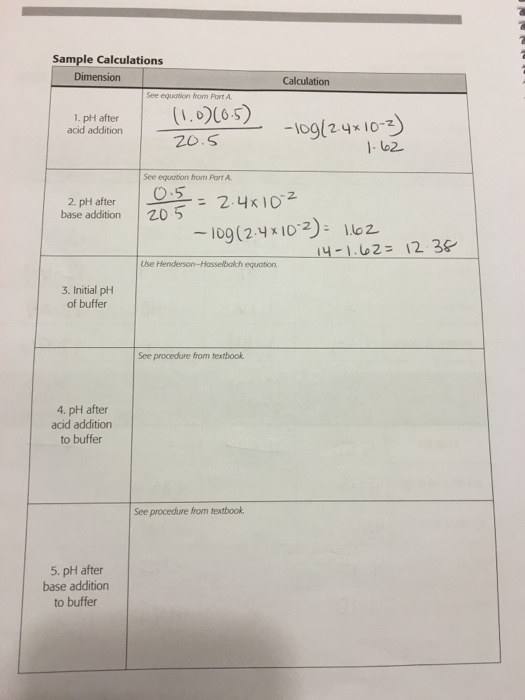 Sample Calculations
Dimension
Calculation
1. pH after
acid addition
See equation from Part A.
(1.0)(0.5)
20.5
-log(2.4x10-2)
1.62
2. pH after
base addition
See equation from Part A.
0.5
20.5
= 2.4x10-2
-log(2.4x10-2)= 1.62
14-1.62= 12.38
3. Initial pH
of buffer
Use Henderson-Hasselbalch equation.
4. pH after
acid addition
to buffer
See procedure from textbook.
5. pH after
base addition
to buffer
See procedure from textbook.